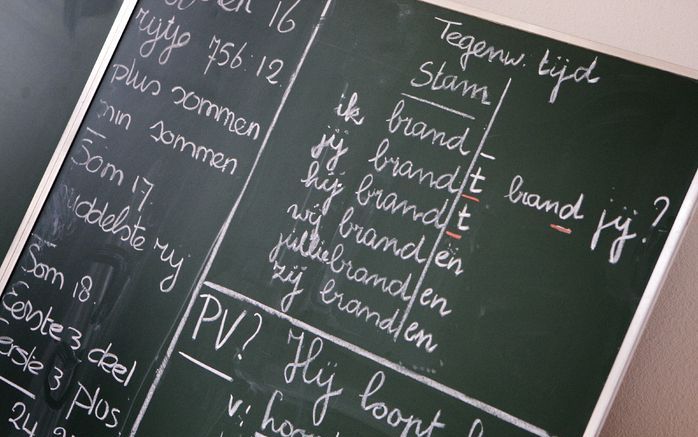 16
rijtje 756:12.
plus sommen
min sommen
Som 17
middelste rij
Som 18.
Eerste 3 deel
Eerste 3 plus
24
Tegenw. tijd
Stam
ik brand -
jij brand t brand jij?
hij brand t
wij brand en
jullie brand en
zij brand en
PV? Hij loopt
v: